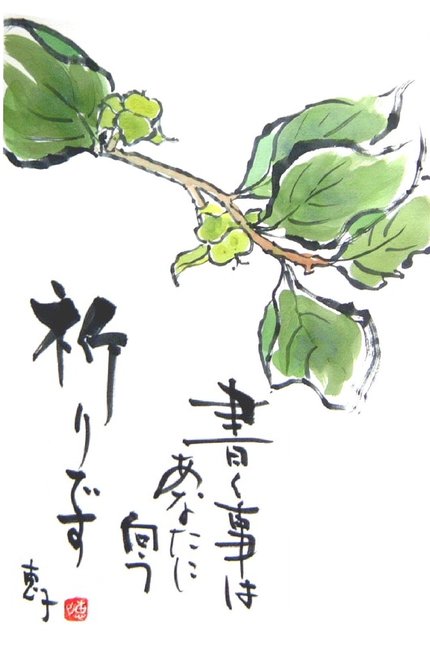 書く事は
あなたに
向う
祈りです
恵子